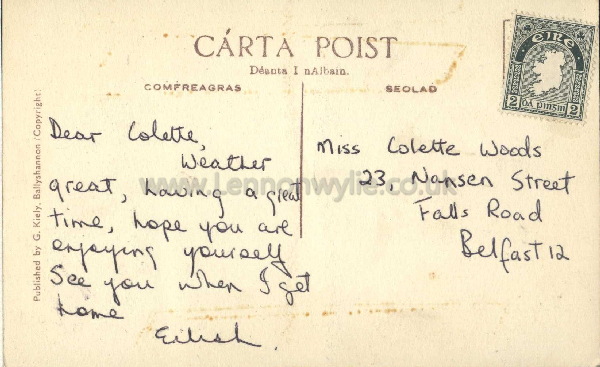 CÁRTA POIST
Déanta I nAlbain.
COMFREAGRAS
SEOLAD
ÉIRE
2 DÁ PINGIN 2
Published by G. Kiely, Ballyshannon (Copyright)
Dear Colette,
Weather
great, having a great
time, hope you are
enjoying yourself
See you when I get
home
Eilish.
Miss Colette Woods
23, Nansen Street
Falls Road
Belfast 12
www.Lennonwylie.co.uk